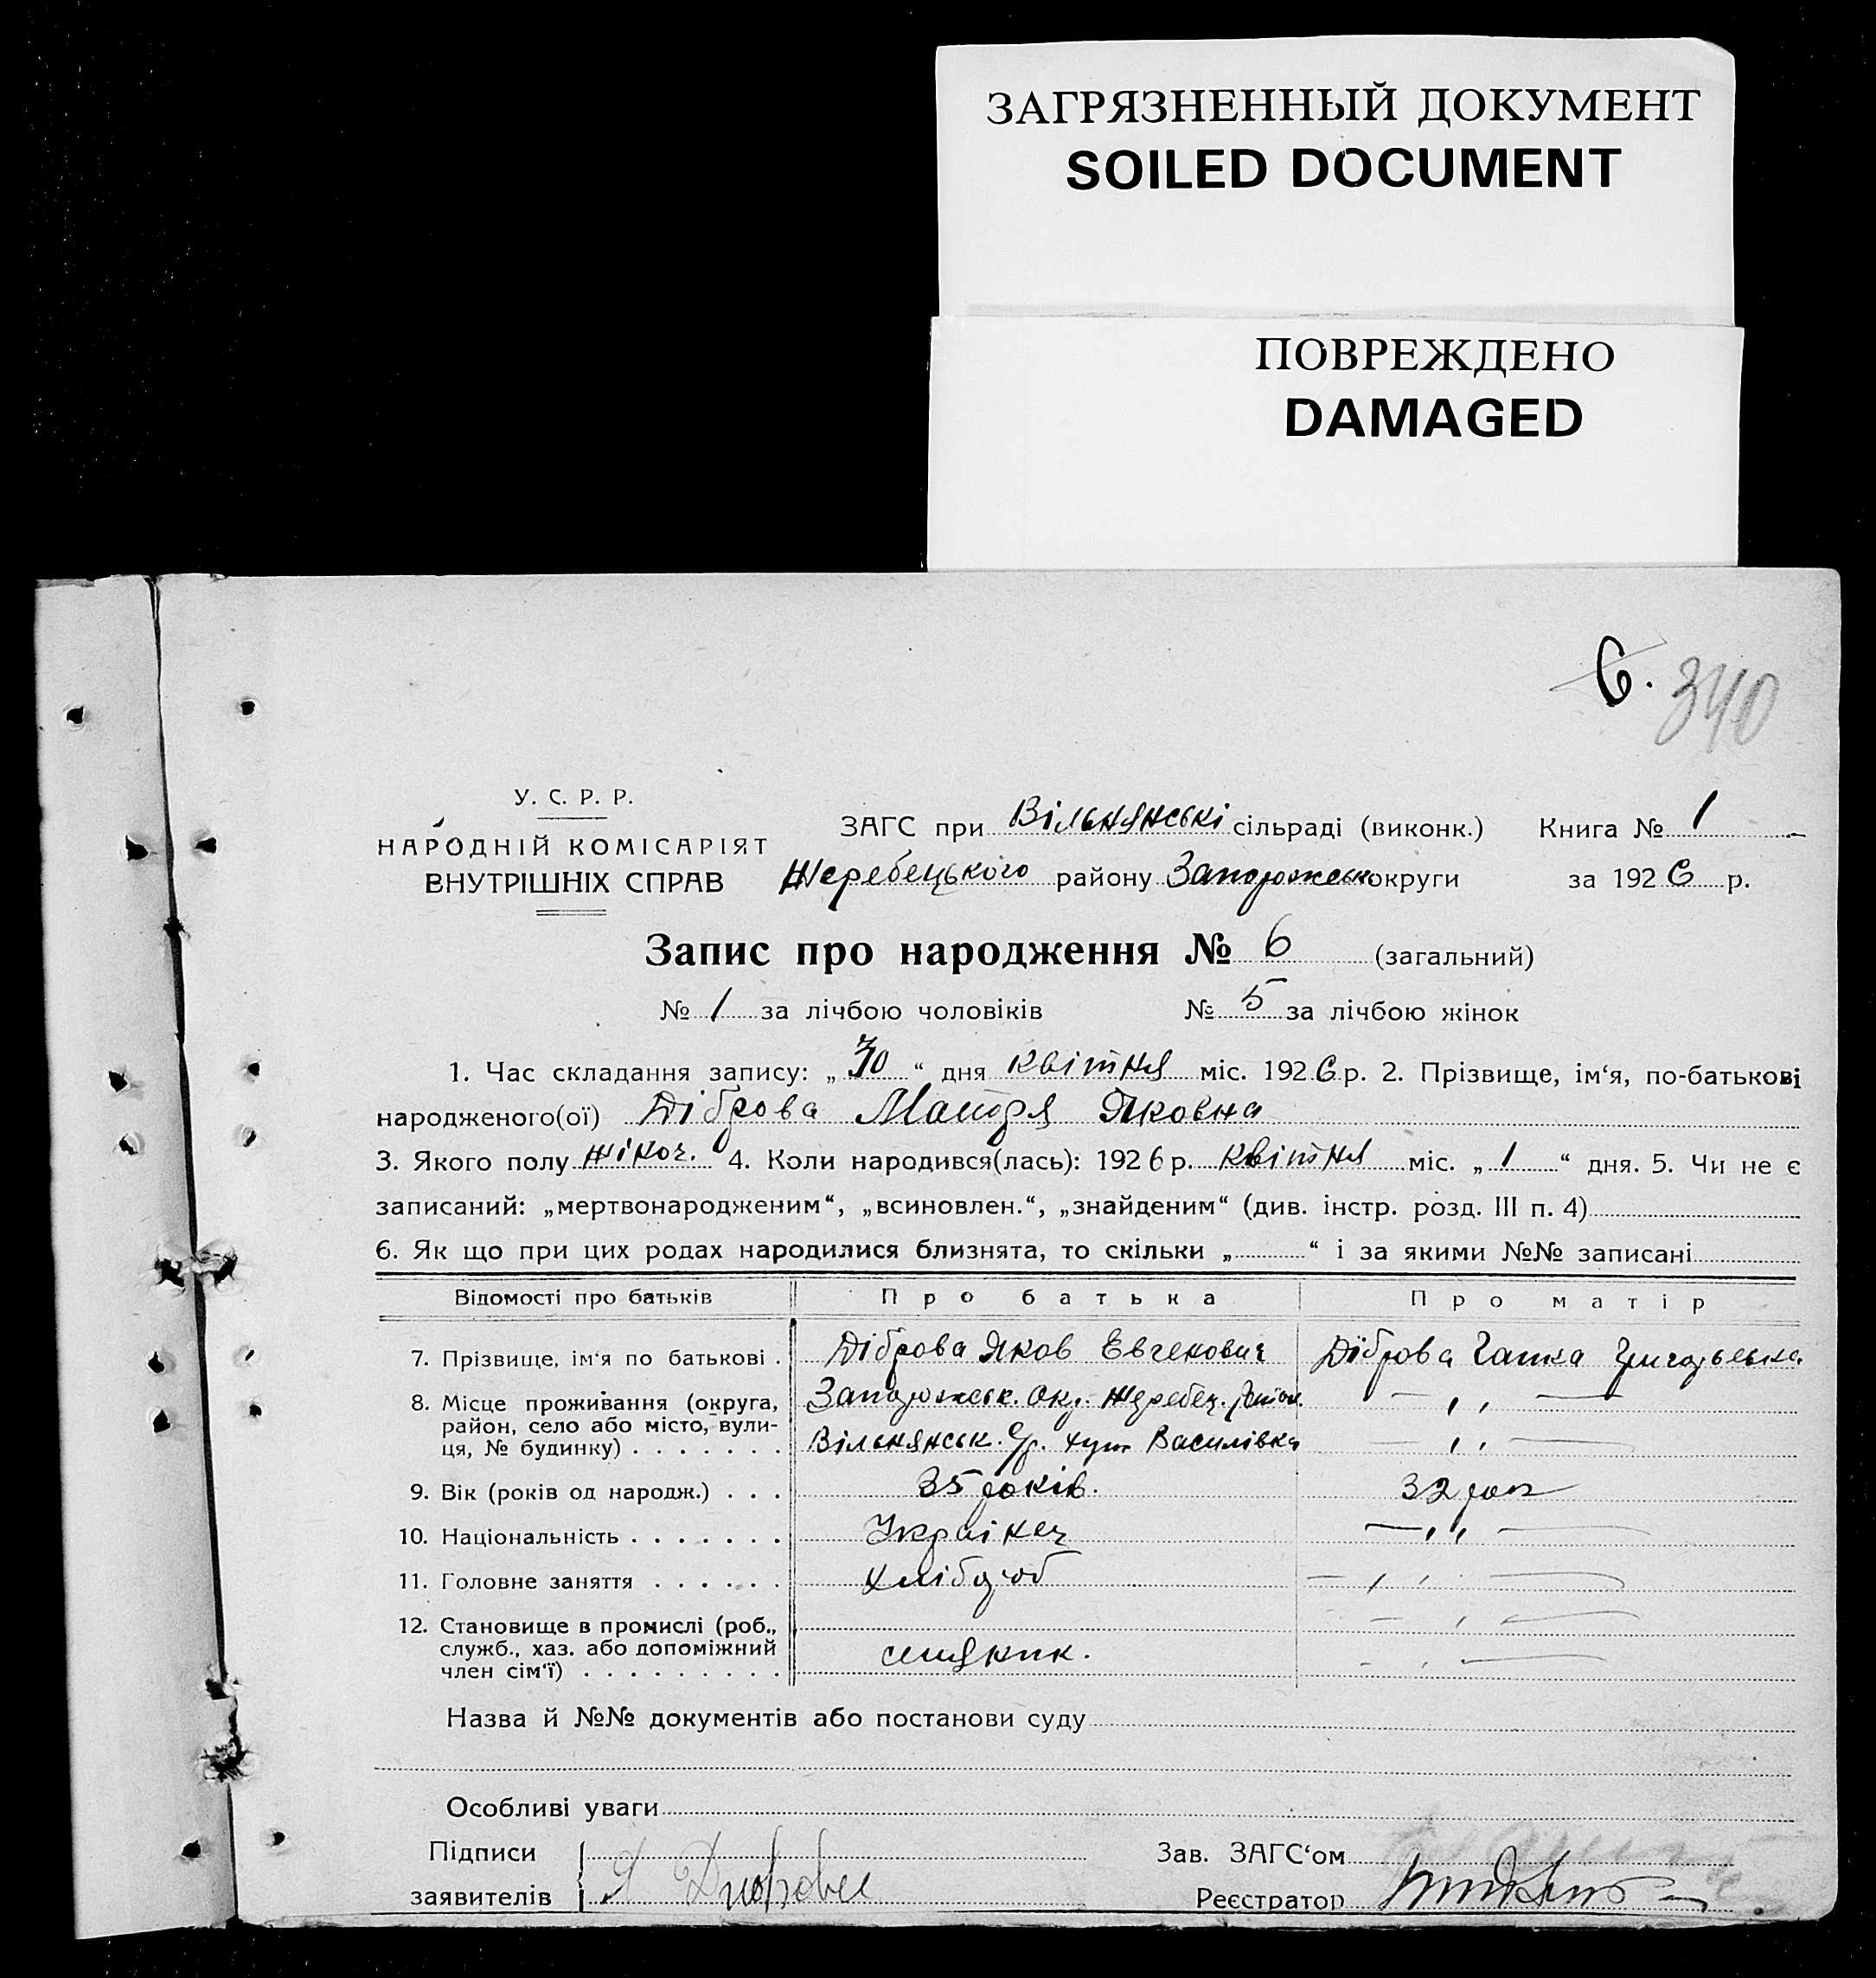 ЗАГРЯЗНЕННЫЙ ДОКУМЕНТ
SOILED DOCUMENT
ПОВРЕЖДЕНО
DAMAGED
6. 340
У. С. Р. Р.
НАРОДНІЙ КОМІСАРІЯТ
ВНУТРІШНІХ СПРАВ
ЗАГС при Вільнянські сільраді (виконк.) Книга № 1
Жеребецького району Запорожськ округи за 1926 р.
Запис про народження № 6 (загальний)
№ 1 за лічбою чоловіків № 5 за лічбою жінок
1. Час складання запису: „30“ дня квітня міс. 1926 р. 2. Прізвище, ім‘я, по-батькові
народженого(ої) Діброва Мотря Яковна
3. Якого полу жіноч. 4. Коли народився(лась): 1926 р. квітня міс. „1“ дня. 5. Чи не є
записаний: „мертвонародженим“, „всиновлен.“, „знайденим“ (див. інстр. розд. III п. 4)
6. Як що при цих родах народилися близнята, то скільки „ “ і за якими №№ записані
Відомості про батьків Про батька Про матір
7. Прізвище, ім‘я по батькові . Діброва Яков Евгенович Діброва Гапка Григорьевна
8. Місце проживання (округа, Запорожськ. Окр. Жеребец. район. — „ —
район, село або місто, вули-
ця, № будинку) . . . . . . . Вільнянськ. с/р. хут Василівка — „ —
9. Вік (років од народж.) . . . 35 років. 32 рок
10. Національність . . . . . . . Українец — „ —
11. Головне заняття . . . . . . хлібороб — „ —
12. Становище в промислі (роб., — „ —
служб., хаз. або допоміжний селяник. — „ —
член сім‘ї) . . . . . . . . .
Назва й №№ документів або постанови суду
Особливі уваги
Підписи Зав. ЗАГС‘ом
заявителів Я Диброва Реєстратор